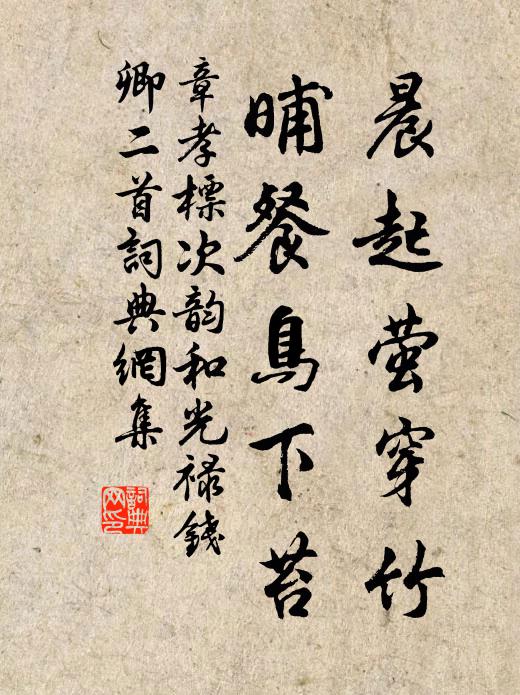 晨起萤穿竹
晡餐鳥下苔
章孝標次韵和光禄錢
卿二首詞典網集
詞典
网印